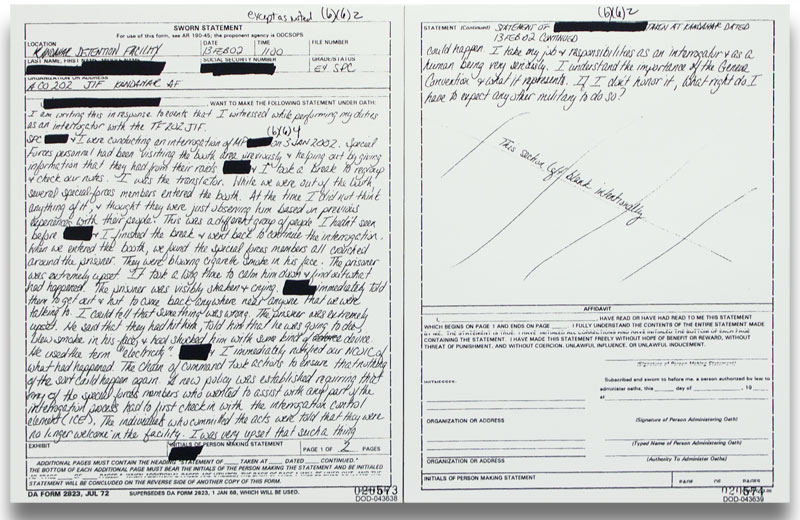 except as noted (b)(6)2
SWORN STATEMENT
For use of this form, see AR 190-45; the proponent agency is ODCSOPS
LOCATION
KANDAHAR DETENTION FACILITY
DATE
13 FEB 02
TIME
1100
FILE NUMBER
LAST NAME, FIRST NAME, MIDDLE NAME
SOCIAL SECURITY NUMBER
GRADE/STATUS
E4 SPC
ORGANIZATION OR ADDRESS
A CO 202 JIF KANDAHAR AF
I, WANT TO MAKE THE FOLLOWING STATEMENT UNDER OATH:
I am writing this in response to events that I witnessed while performing my duties
as an interrogator with the TF 202 JIF.
(b)(6)4
SPC & I were conducting an interrogation of on 3 JAN 2002. Special
Forces personnel had been visiting the booth area previously & helping out by giving
information that they had from their raids. & I took a break to regroup
& check our notes. I was the translator. While we were out of the booth,
several special forces members entered the booth. At the time I did not think
anything of it, & thought they were just observing him based on previous
experiences with their people. This was a different group of people I hadn't seen
before. & I finished the break & went back to continue the interrogation.
When we entered the booth, we found the special forces members all crouched
around the prisoner. They were blowing cigarette smoke in his face. The prisoner
was extremely upset. It took a long time to calm him down & find out what
had happened. The prisoner was visibly shaken & crying. immediately told
them to get out & not to come back anywhere near anyone that we were
talking to. I could tell that something was wrong. The prisoner was extremely
upset. He said that they had hit him, told him that he was going to die,
blew smoke in his face, & had shocked him with some kind of device.
He used the term "electricity." & I immediately notified our NCOIC of
what had happened. The chain of command took actions to ensure that nothing
of the sort could happen again. A new policy was established requiring that
any of the special forces members who wanted to assist with any part of the
interrogation process had to first check in with the interrogation control
element (ICE). The individuals who committed the acts were told that they were
no longer welcome in the facility. I was very upset that such a thing
EXHIBIT
INITIALS OF PERSON MAKING STATEMENT
PAGE 1 OF 2 PAGES
ADDITIONAL PAGES MUST CONTAIN THE HEADING "STATEMENT OF TAKEN AT DATED CONTINUED."
THE BOTTOM OF EACH ADDITIONAL PAGE MUST BEAR THE INITIALS OF THE PERSON MAKING THE STATEMENT AND BE INITIALED
STATEMENT WILL BE CONCLUDED ON THE REVERSE SIDE OF ANOTHER COPY OF THIS FORM.
DA FORM 2823, JUL 72
SUPERSEDES DA FORM 2823, 1 JAN 68, WHICH WILL BE USED.
020573
DOD-043638
(b)(6)2
STATEMENT (Continued) STATEMENT OF TAKEN AT KANDAHAR DATED
13 FEB 02 CONTINUED
could happen. I take my job & responsibilities as an interrogator & as a
human being very seriously. I understand the importance of the Geneva
Convention & what it represents. If I don't honor it, what right do I
have to expect any other military to do so?
This section left blank intentionally
AFFIDAVIT
I, , HAVE READ OR HAVE HAD READ TO ME THIS STATEMENT
WHICH BEGINS ON PAGE 1 AND ENDS ON PAGE . I FULLY UNDERSTAND THE CONTENTS OF THE ENTIRE STATEMENT MADE
BY ME. THE STATEMENT IS TRUE. I HAVE INITIALED ALL CORRECTIONS AND HAVE INITIALED THE BOTTOM OF EACH PAGE
CONTAINING THE STATEMENT. I HAVE MADE THIS STATEMENT FREELY WITHOUT HOPE OF BENEFIT OR REWARD, WITHOUT
THREAT OF PUNISHMENT, AND WITHOUT COERCION, UNLAWFUL INFLUENCE, OR UNLAWFUL INDUCEMENT.
(Signature of Person Making Statement)
WITNESSES:
Subscribed and sworn to before me, a person authorized by law to
administer oaths, this day of , 19
at
ORGANIZATION OR ADDRESS
(Signature of Person Administering Oath)
(Typed Name of Person Administering Oath)
ORGANIZATION OR ADDRESS
(Authority To Administer Oaths)
INITIALS OF PERSON MAKING STATEMENT
PAGE OF PAGES
020574
DOD-043639